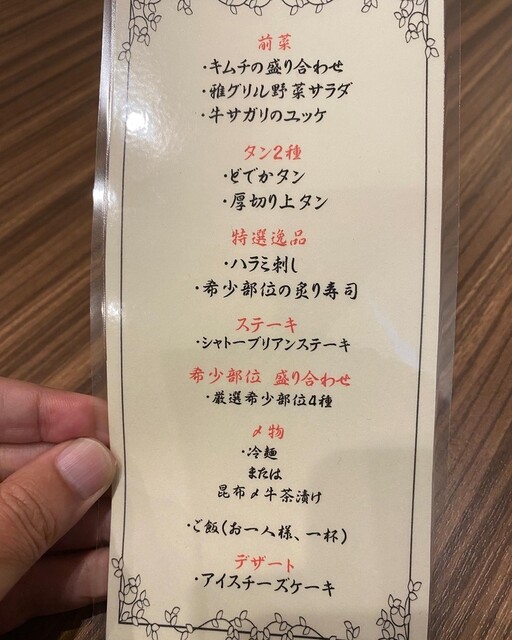 前菜
・キムチの盛り合わせ
・雅グリル野菜サラダ
・牛サガリのユッケ
タン2種
・どでかタン
・厚切り上タン
特選逸品
・ハラミ刺し
・希少部位の炙り寿司
ステーキ
・シャトーブリアンステーキ
希少部位 盛り合わせ
・厳選希少部位4種
〆物
・冷麺
または
昆布〆牛茶漬け
・ご飯(お一人様、一杯)
デザート
・アイスチーズケーキ